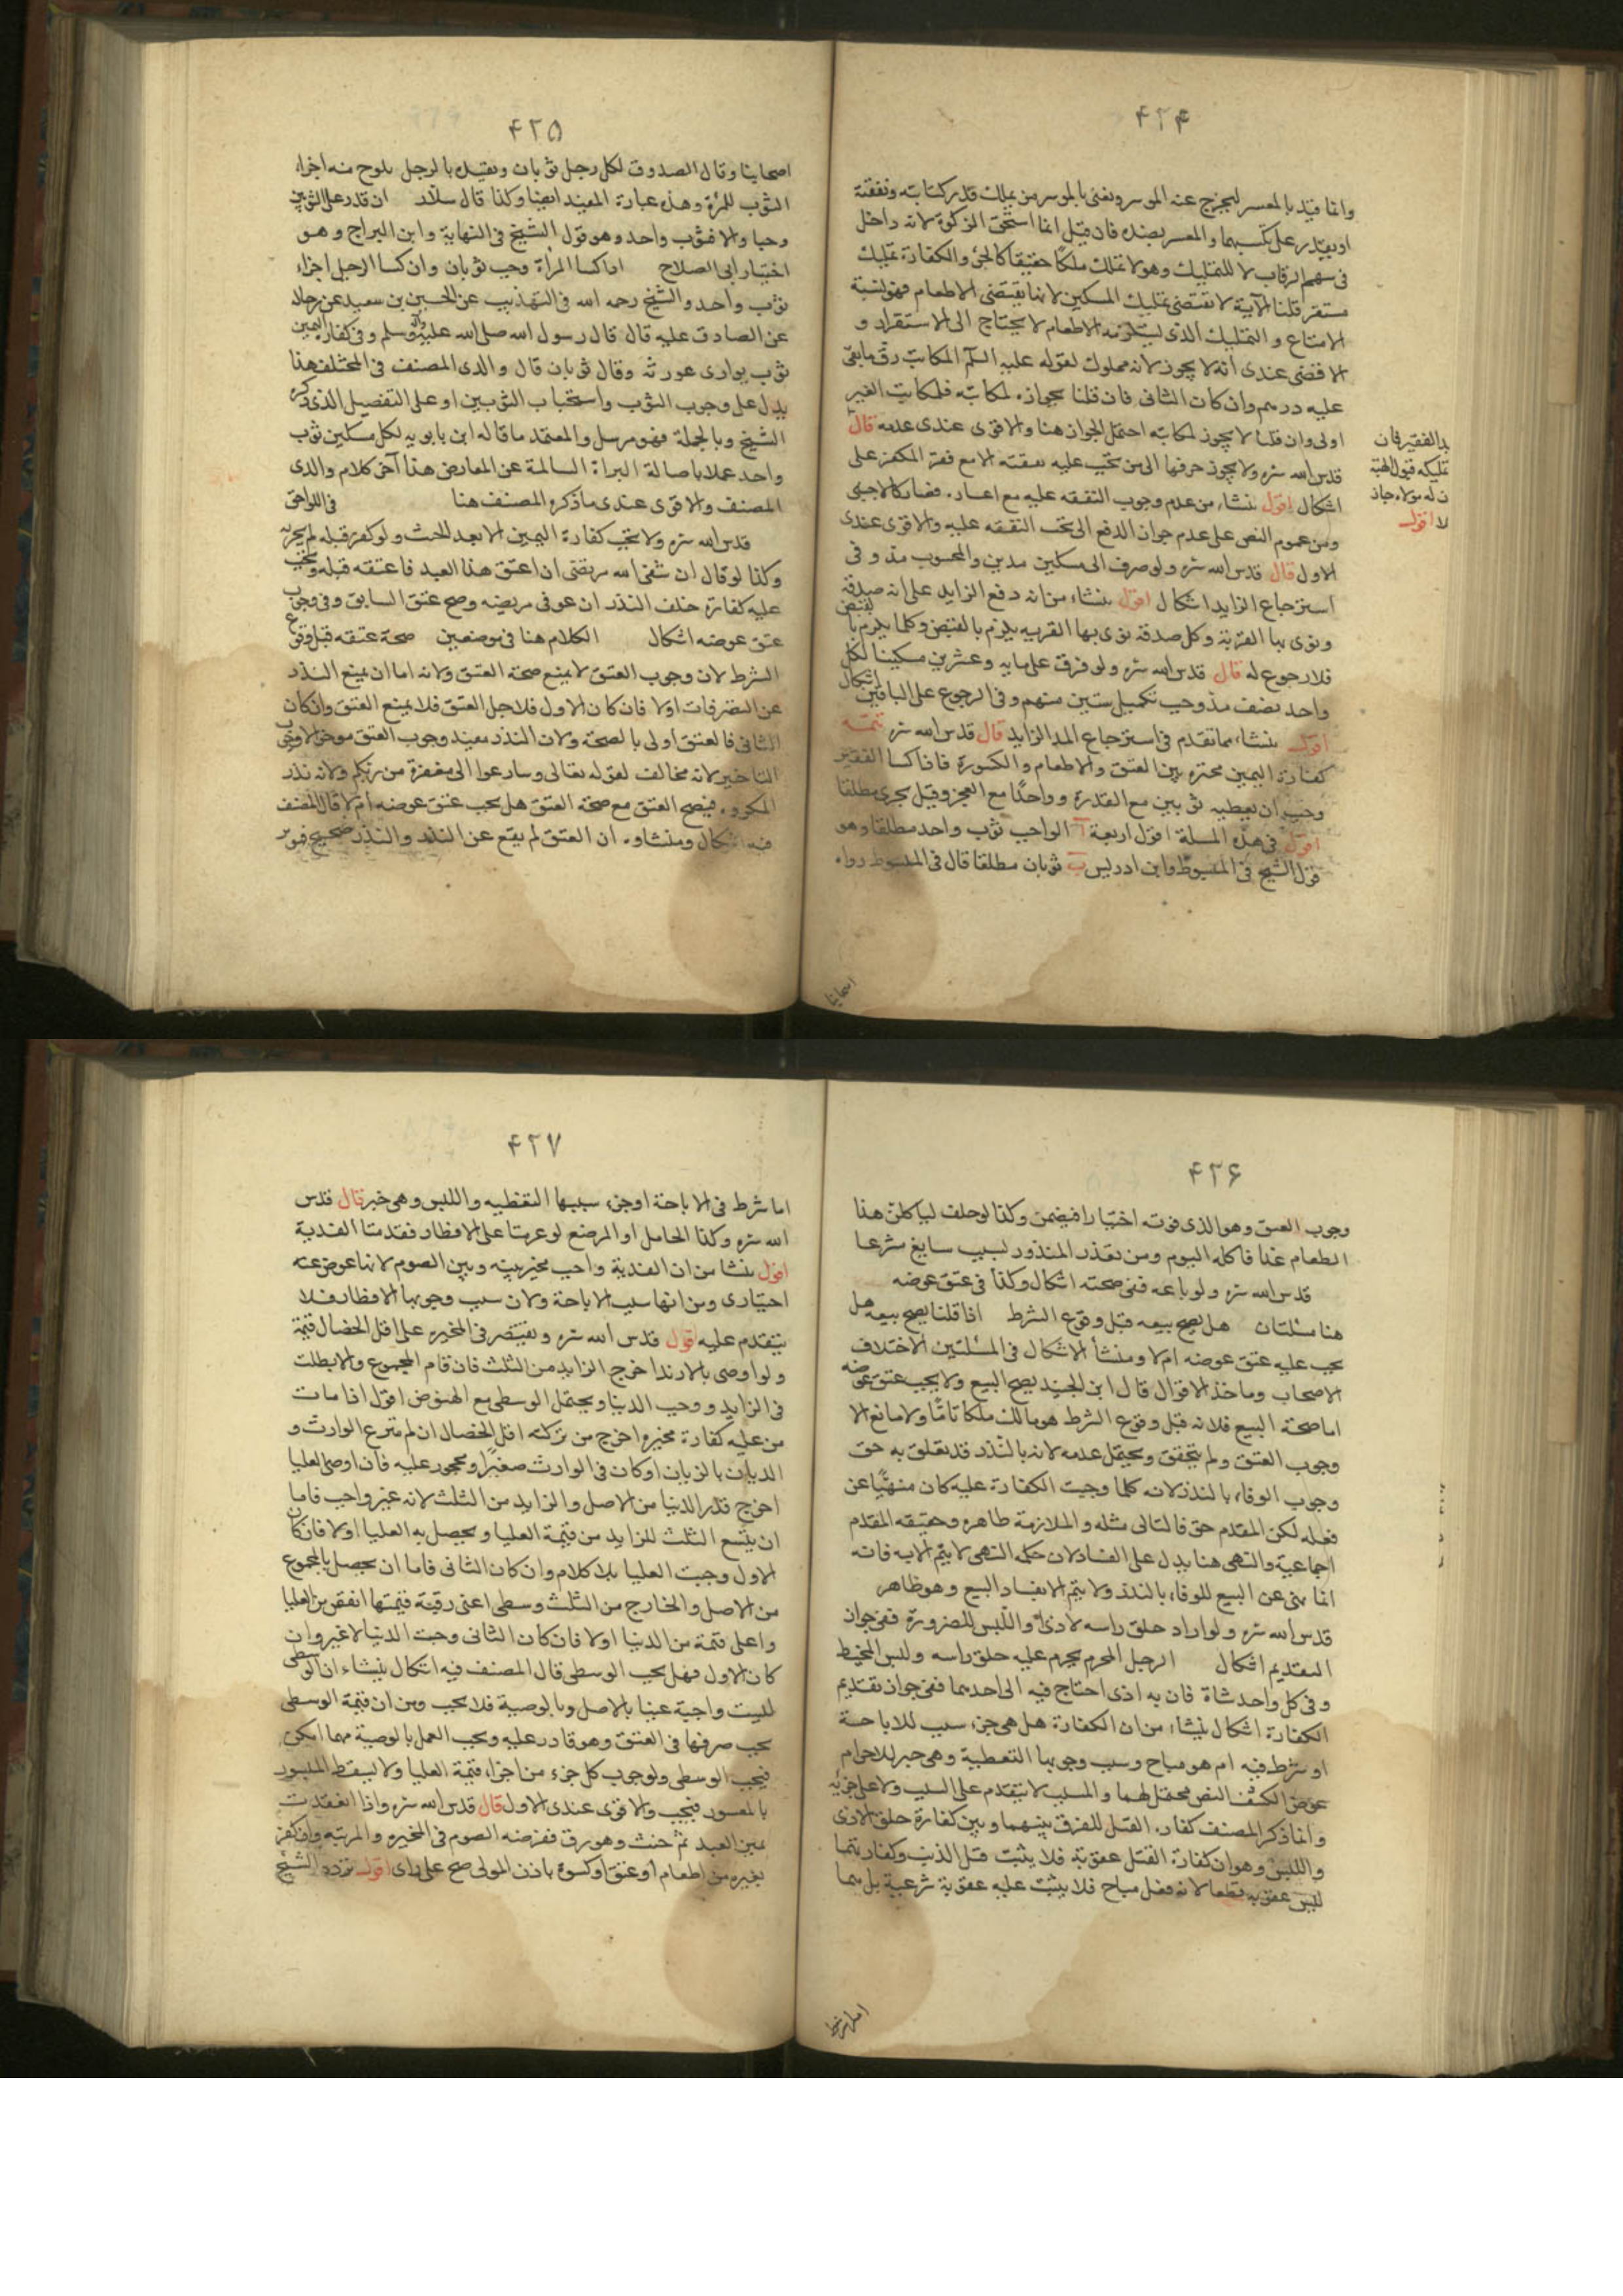 ۴۲۴
وانما قيد بالمعسر ليخرج عنه الموسر ونعنى بالموسر من يملك قدر كتابته ونفقته
او يقدر على تكسبهما والمعسر بضده فان قيل انما استحق الزكوة لانه داخل
فى سهم الرقاب لا للتمليك وهو لا تملك ملكا حقيقا كالحى والكفارة تمليك
مستقر قلنا الآية لا تقتضى تمليك المسكين لانها تقتضى الاطعام فهو لنسبة
الامتاع و التمليك الذى ليستلزمه الاطعام لا يحتاج الى الاستقرار و
الاقضى عندى انه لا يجوز لانه مملوك لقوله عليه السلم المكاتب رق ما بقى
عليه درهم وان كان الثانى فان قلنا بجوازه لمكاتبه فلمكاتب الغير
اولى وان قلنا لا يجوز لمكاتبه احتمل الجواز هنا والاقوى عندى عدمه قال
قدس الله سره ولا يجوز صرفها الى من تجب عليه نفقته الا مع فقر المكفر على
اشكال اقول ينشاء من عدم وجوب النفقه عليه مع اعساره فصار كالاجنبى
ومن عموم النص على عدم جواز الدفع الى تجب النفقه عليه والاقوى عندى
الاول قال قدس الله سره ولو صرف الى مسكين مدين والمحسوب مد و فى
استرجاع الزايد اشكال اقول ينشاء من انه دفع الزايد على انه صدقة
ونوى بها القربة وكل صدقة نوى بها القربه يلزم بالقبض وكلما يلزم بالقبض
فلا رجوع له قال قدس الله سره ولو فرق على مايه وعشرين مسكينا لكل
واحد نصف مد وجب تكميل ستين منهم و فى الرجوع على الباقين اشكال
اقول ينشاء مما تقدم فى استرجاع المد الزايد قال قدس الله سره تتمه
كفارة اليمين مخيره بين العتق والاطعام والكسوة فاذا كسا الفقير
وجب ان يعطيه ثوبين مع القدرة وواحدا مع العجز وقيل يجزى مطلقا
اقول فى هذه المسلة اقول اربعة آ الواجب ثوب واحد مطلقا وهو
قول الشيخ فى المبسوط وابن ادريس ب ثوبان مطلقا قال فى المبسوط رواه
يد الفقير فان
تمليكه قبول الهبة
لا اقول
اصحابنا
۴۲۵
اصحابنا وقال الصدوق لكل رجل ثوبان وتقييده بالرجل يلوح منه اجزاء
الثوب للمرة وهذه عبارة المفيد ايضا وكذا قال سلار ان قدر على الثوبين
وجبا والا فثوب واحد وهو قول الشيخ فى النهاية وابن البراج و هو
اختيار ابى الصلاح اذا كسا المرأة وجب ثوبان وان كسا الرجل اجزاء
ثوب واحد و الشيخ رحمه الله فى التهذيب عن الحسين بن سعيد عن رجاله
عن الصادق عليه قال قال رسول الله صلى الله عليه وآله وسلم و فى كفارة اليمين
ثوب يوارى عورته وقال ثوبان قال والدى المصنف فى المختلف هذا
يدل على وجوب الثوب واستحباب الثوبين او على التفصيل الذى ذكره
الشيخ وبالجملة فهو مرسل والمعتمد ما قاله ابن بابويه لكل مسكين ثوب
واحد عملا باصالة البراءة السالمة عن المعارض هذا آخر كلام والدى
المصنف والاقوى عندى ما ذكره المصنف هنا فى اللواحق
قدس الله سره ولا تجب كفارة اليمين الا بعد الحنث ولو كفر قبله لم يجزه
وكذا لو قال ان شفى الله مريضى ان اعتق هذا العبد فاعتقه قبله وتجب
عليه كفارة خلف النذر ان عوفى مريضه وصح عتق السابق وفى وجوب
عتق عوضه اشكال الكلام هنا فى موضعين صحة عتقه قبل وقوع
الشرط لان وجوب العتق لا يمنع صحة العتق ولانه اما ان يمنع النذر
عن التصرفات اولا فان كان الاول فلاجل العتق فلا يمنع العتق وان كان
الثانى فالعتق اولى بالصحة ولان النذر يفيد وجوب العتق
التاخير لانه مخالف لقوله تعالى وسارعوا الى مغفرة من ربكم ولانه نذر
المكروه فيصح العتق مع صحة العتق هل يجب عتق عوضه ام لا قال المصنف
فيه اشكال ومنشاوه ان العتق لم يقع عن النذر والنذر صحيح
۴۲۶
وجوب العتق وهو الذى فوته اختيارا فيضمن وكذا لو حلف لياكلن هذا
الطعام غدا فاكله اليوم ومن تعذر المنذور لسبب سايغ شرعا
قدس الله سره ولو باعه ففى صحته اشكال وكذا فى عتق عوضه
هنا مسئلتان هل يصح بيعه قبل وقوع الشرط اذا قلنا يصح بيعه هل
يجب عليه عتق عوضه ام لا ومنشأ الاشكال فى المسئلتين الاختلاف
الاصحاب وماخذ الاقوال قال ابن الجنيد يصح البيع ولا يجب عتق عوضه
اما صحة البيع فلانه قبل وقوع الشرط هو مالك ملكا تاما ولا مانع الا
وجوب العتق ولم يتحقق ويحتمل عدمه لانه بالنذر قد تعلق به حق
وجوب الوفاء بالنذر لانه كلما وجبت الكفارة عليه كان منهيا عن
فعله لكن المقدم حق فالتالى مثله والملازمة ظاهره وحقيقه المقدم
اجماعية والنهى هنا يدل على الفساد لان حكمه النهى لا يتم الا به فانه
انما نهى عن البيع للوفاء بالنذر ولا يتم الا بفساد البيع وهو ظاهر
قدس الله سره ولو اراد حلق راسه لاذى او اللبس للضرورة ففى جواز
التقديم اشكال الرجل المحرم يحرم عليه حلق راسه ولبس المخيط
و فى كل واحد شاة فان به اذى احتاج فيه الى احدهما ففى جواز تقديم
الكفارة اشكال ينشاء من ان الكفارة هل هى جزء سبب للاباحة
او شرط فيه ام هو مباح وسبب وجوبها التغطية وهى جبر للاحرام
النص محتمل لهما والمسبب لا يتقدم على السبب ولا على جزئه
وانما ذكر المصنف كفاره القتل للفرق بينهما وبين كفارة حلق الاذى
واللبس وهو ان كفارة القتل عقوبة فلا يثبت قبل الذنب وكفارتهما
ليس عقوبة قطعا لانه فعل مباح فلا يثبت عليه عقوبة شرعية بل هما
اما شرط
۴۲۷
اما شرط فى الاباحة او جزء سببها التغطيه واللبس وهى جبر قال قدس
الله سره وكذا الحامل او المرضع لو عزمتا على الافطار فقدمتا الفدية
اقول ينشا من ان الفدية واجب مخير بينه وبين الصوم لانها عوض عنه
اختيارى ومن انها سبب الاباحة ولان سبب وجوبها الافطار فلا
يتقدم عليه قول قدس الله سره ويقتصر فى المخيره على اقل الخصال قيمة
ولو اوصى بالازيد اخرج الزايد من الثلث فان قام المجموع والا بطلت
فى الزايد و وجب الدنيا ويحتمل الوسطى مع النهوض اقول اذا مات
من عليه كفارة مخيره اخرج من تركته اقل الخصال ان لم يتبرع الوارث و
الديان بالزيادة او كان فى الوارث صغيرا ومحجور عليه فان اوصى العليا
اخرج قدر الدنيا من الاصل والزايد من الثلث لانه غير واجب فاما
ان يتسع الثلث للزايد من قيمة العليا ويحصل به العليا اولا فان كان
الاول وجبت العليا بلا كلام وان كان الثانى فاما ان يحصل بالمجموع
من الاصل والخارج من الثلث وسطى اعنى رقبة قيمتها انقص من العليا
واعلى قيمة من الدنيا اولا فان كان الثانى وجبت الدنيا لا غير وان
كان الاول فهل يجب الوسطى قال المصنف فيه اشكال ينشاء ان الوسطى
ليست واجبة عينا بالاصل ولا بالوصية فلا يجب ومن ان قيمة الوسطى
يجب صرفها فى العتق وهو قادر عليه ويجب العمل بالوصية مهما امكن
فيجب الوسطى ولوجوب كل جزء من اجزاء قيمة العليا ولا يسقط الميسور
بالمعسور فيجب والاقوى عندى الاول قال قدس الله سره واذا انعقدت
يمين العبد ثم حنث وهو رق ففرضه الصوم فى المخيره والمرتبه وان كفر
بغيره من اطعام او عتق او كسوة باذن المولى صح على راى اقول تردد الشيخ